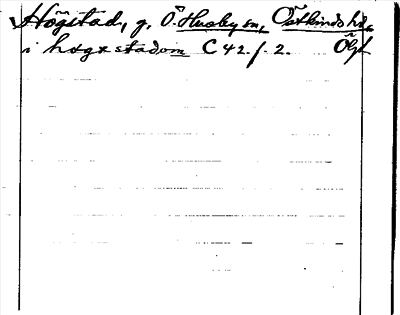 Högstad, g, Ö. Husby sn, Östkinds hd,
i høgxstadom C 42. f. 2. Ögl